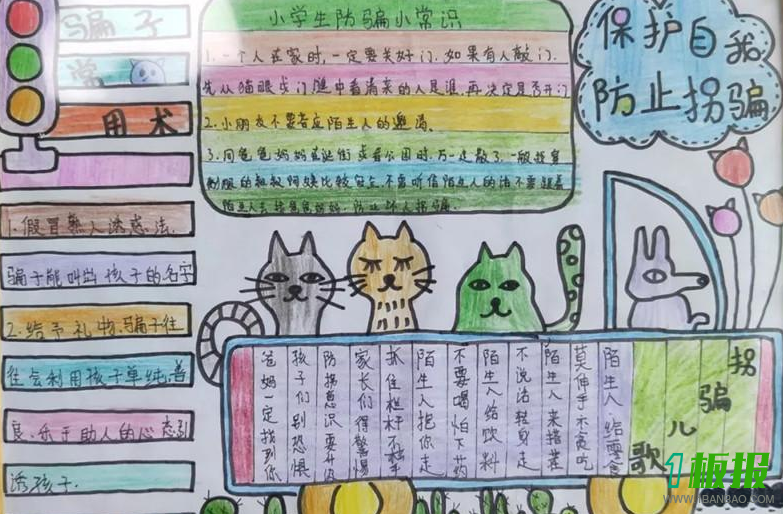 骗子
常
用术
1.假冒熟人诱惑法.
骗子能叫出孩子的名字
2.给予礼物.骗子往
往会利用孩子单纯.善
良.乐于助人的心态引
诱孩子.
小学生防骗小常识
1.一个人在家时,一定要关好门.如果有人敲门.
先从猫眼或门缝中看清来的人是谁,再决定是否开门
2.小朋友不要答应陌生人的邀请。
3.同爸爸妈妈在逛街或者公园时.万一走散了.一般找穿
制服的叔叔阿姨比较安全,不要听信陌生人的话不要跟着
陌生人去
保护自我
防止拐骗
拐骗儿歌
陌生人给零食
莫伸手不贪吃
陌生人来搭茬
不说话转身走
陌生人给饮料
不要喝怕下药
陌生人抱你走
抓住栏杆不松手
家长们得警惕
防拐意识要升级
孩子们别恐惧
爸妈一定找到你
1板报
WWW.1BANBAO.COM